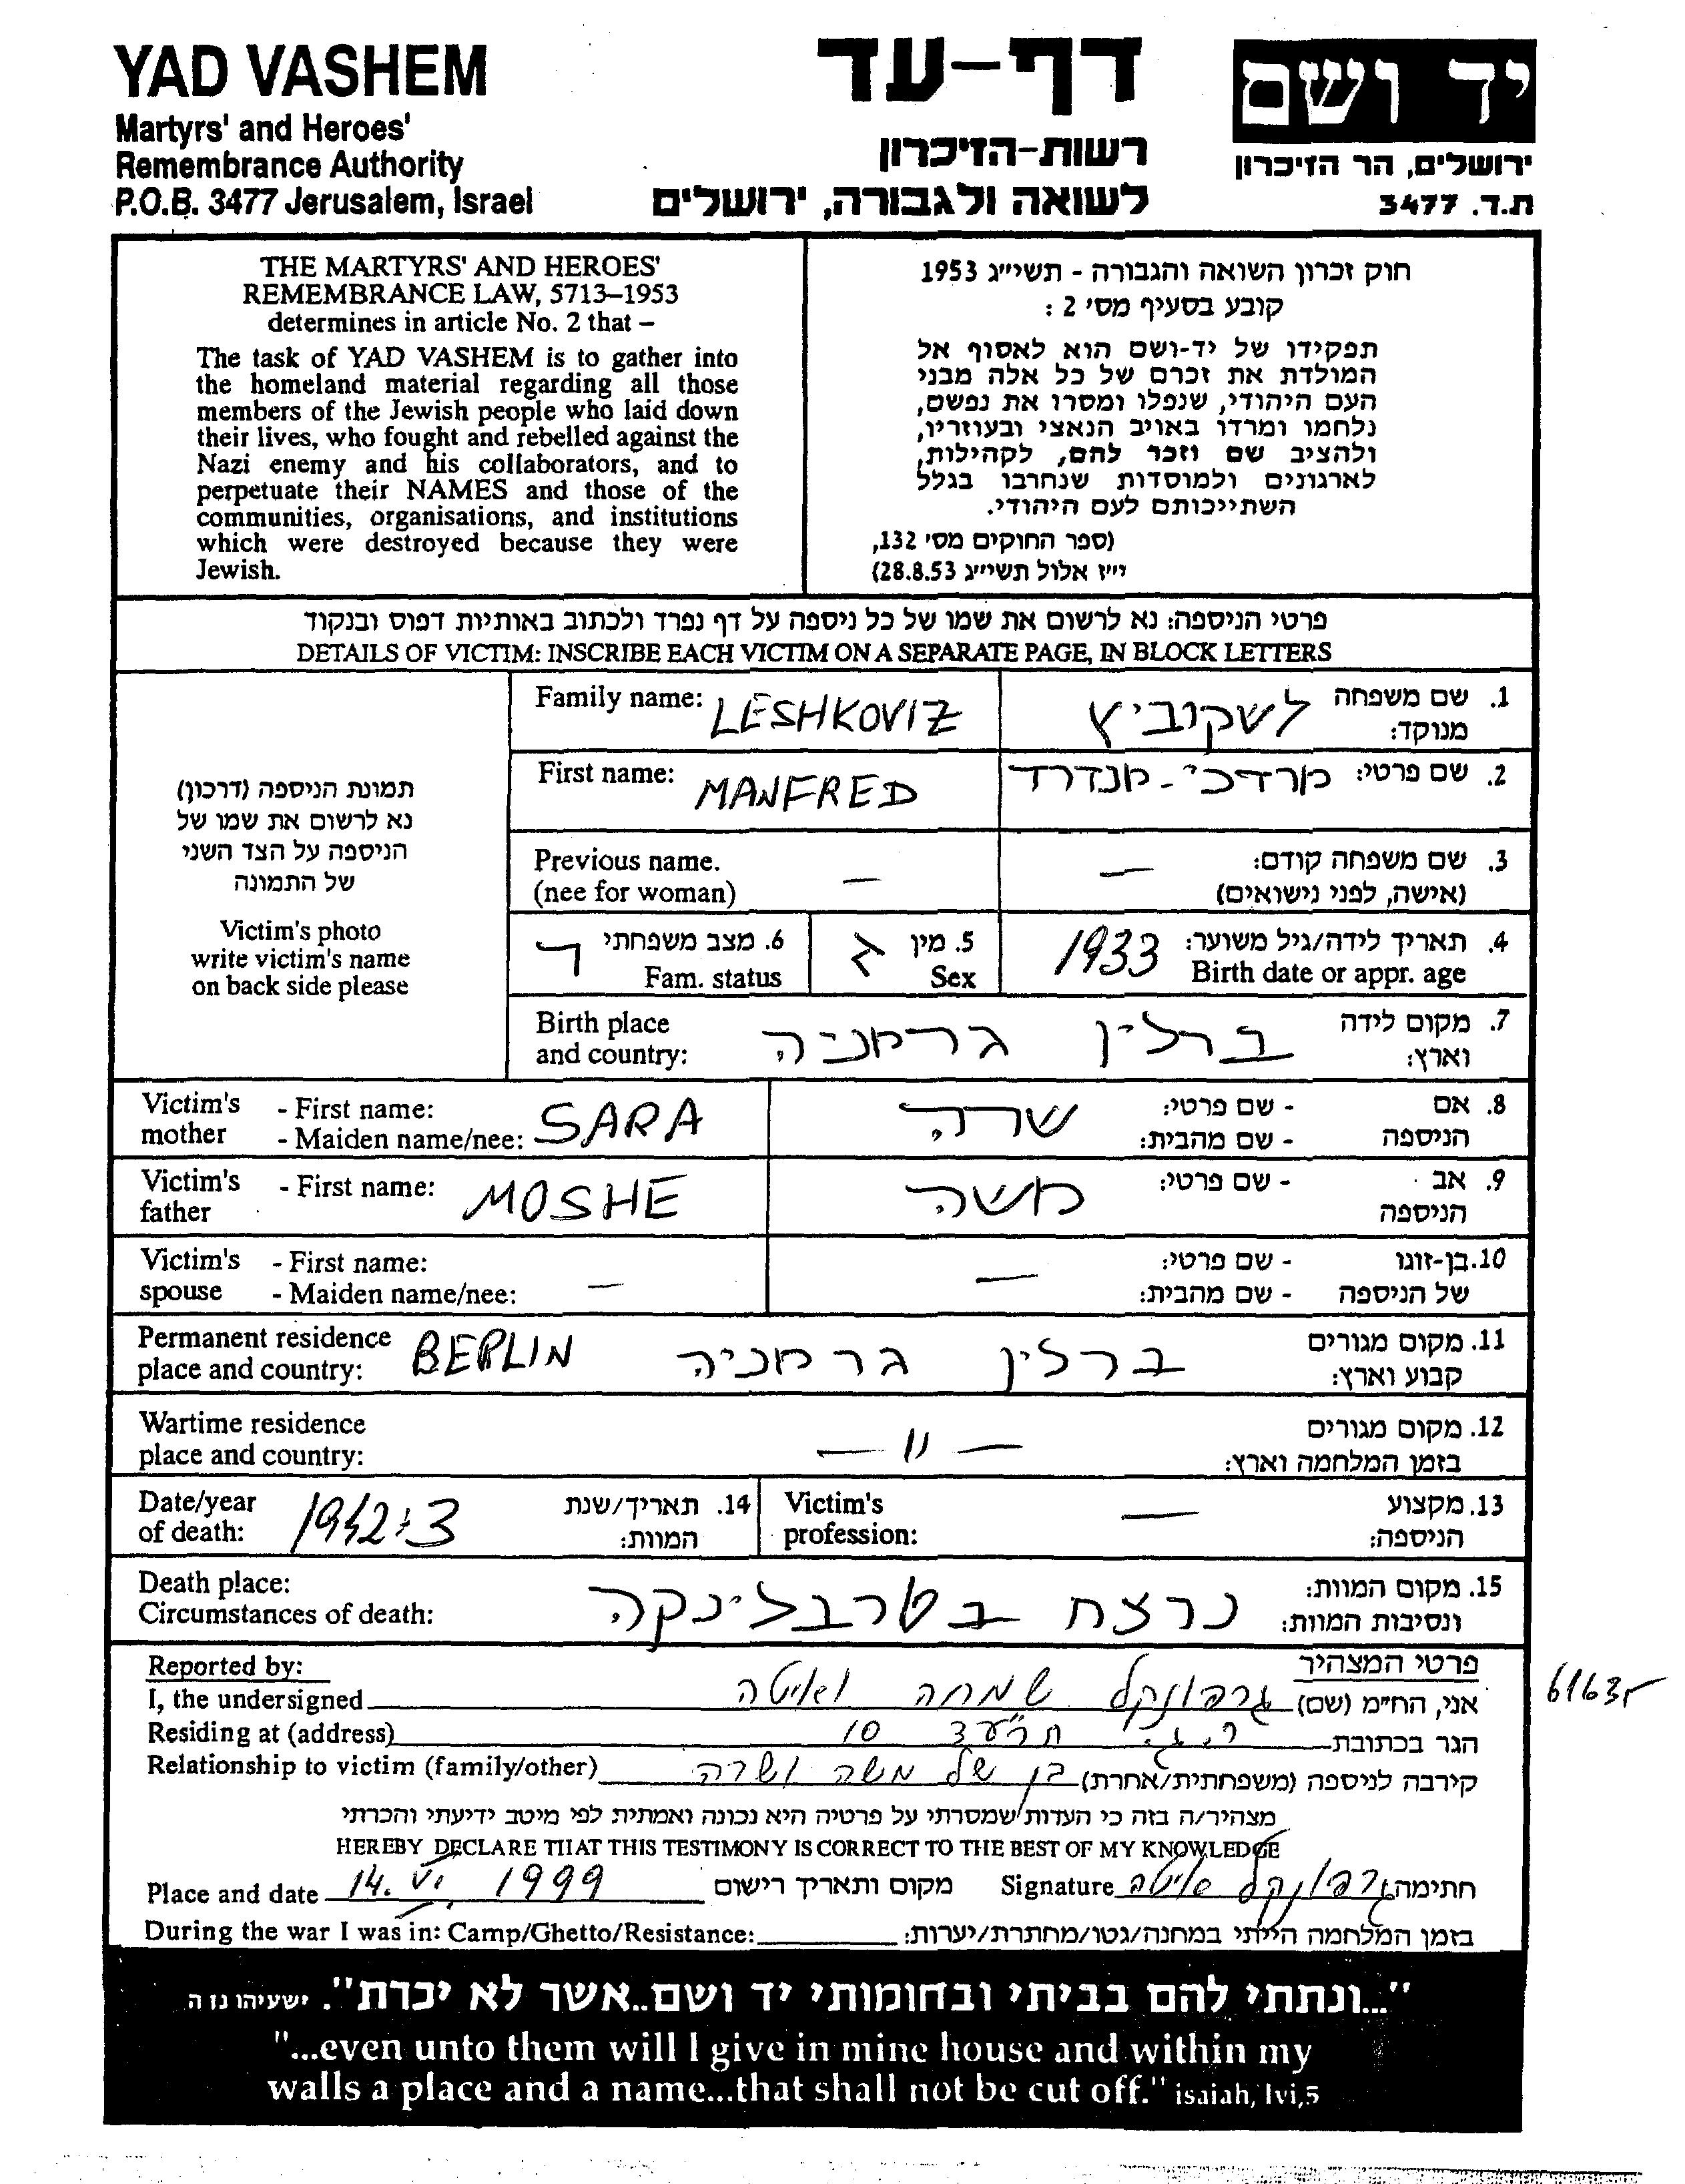 YAD VASHEM
Martyrs' and Heroes'
Remembrance Authority
P.O.B. 3477 Jerusalem, Israel
דף-עד
רשות-הזיכרון
לשואה ולגבורה, ירושלים
יד ושם
ירושלים, הר הזיכרון
ת.ד. 3477
THE MARTYRS' AND HEROES'
REMEMBRANCE LAW, 5713–1953
determines in article No. 2 that –
The task of YAD VASHEM is to gather into
the homeland material regarding all those
members of the Jewish people who laid down
their lives, who fought and rebelled against the
Nazi enemy and his collaborators, and to
perpetuate their NAMES and those of the
communities, organisations, and institutions
which were destroyed because they were
Jewish.
חוק זכרון השואה והגבורה - תשי״ג 1953
קובע בסעיף מס׳ 2 :
תפקידו של יד-ושם הוא לאסוף אל
המולדת את זכרם של כל אלה מבני
העם היהודי, שנפלו ומסרו את נפשם,
נלחמו ומרדו באויב הנאצי ובעוזריו,
ולהציב שם וזכר להם, לקהילות,
לארגונים ולמוסדות שנחרבו בגלל
השתייכותם לעם היהודי.
(ספר החוקים מס׳ 132,
י״ז אלול תשי״ג 28.8.53)
פרטי הניספה: נא לרשום את שמו של כל ניספה על דף נפרד ולכתוב באותיות דפוס ובנקוד
DETAILS OF VICTIM: INSCRIBE EACH VICTIM ON A SEPARATE PAGE, IN BLOCK LETTERS
תמונת הניספה (דרכון)
נא לרשום את שמו של
הניספה על הצד השני
של התמונה
Victim's photo
write victim's name
on back side please
Family name: LESHKOVIZ
1. שם משפחה מנוקד: לשקוביץ
First name: MANFRED
2. שם פרטי: מרדכי - מנדרד
Previous name. (nee for woman) —
3. שם משפחה קודם: (אישה, לפני נישואים) —
4. תאריך לידה/גיל משוער: Birth date or appr. age 1933
5. מין Sex ז
6. מצב משפחתי Fam. status ר
Birth place and country:
7. מקום לידה וארץ: ברלין גרמניה
Victim's mother - First name: - Maiden name/nee: SARA
8. אם הניספה - שם פרטי: - שם מהבית: שרה
Victim's father - First name: MOSHE
9. אב הניספה - שם פרטי: משה
Victim's spouse - First name: - Maiden name/nee: —
10. בן-זוגו של הניספה - שם פרטי: - שם מהבית: —
Permanent residence place and country: BERLIN
11. מקום מגורים קבוע וארץ: ברלין גרמניה
Wartime residence place and country:
12. מקום מגורים בזמן המלחמה וארץ: — 11 —
Date/year of death: 1942÷3 14. תאריך/שנת המוות:
Victim's profession: — 13. מקצוע הניספה:
Death place: Circumstances of death:
15. מקום המוות: ונסיבות המוות: נרצח בטרבלינקה
Reported by: פרטי המצהיר
I, the undersigned אני, הח״מ (שם) גרפונקל שמחה ואיטה
Residing at (address) הגר בכתובת ר.ג. חרע״ד 10
Relationship to victim (family/other) קירבה לניספה (משפחתית/אחרת) בן של משה ושרה
מצהיר/ה בזה כי העדות שמסרתי על פרטיה היא נכונה ואמתית לפי מיטב ידיעתי והכרתי
HEREBY DECLARE THAT THIS TESTIMONY IS CORRECT TO THE BEST OF MY KNOWLEDGE
Place and date 14. VI. 1999 מקום ותאריך רישום Signature גרפונקל איטה חתימה
During the war I was in: Camp/Ghetto/Resistance: בזמן המלחמה הייתי במחנה/גטו/מחתרת/יערות:
"...ונתתי להם בביתי ובחומותי יד ושם..אשר לא יכרת". ישעיהו נו ה
"...even unto them will I give in mine house and within my
walls a place and a name...that shall not be cut off." isaiah, lvi,5